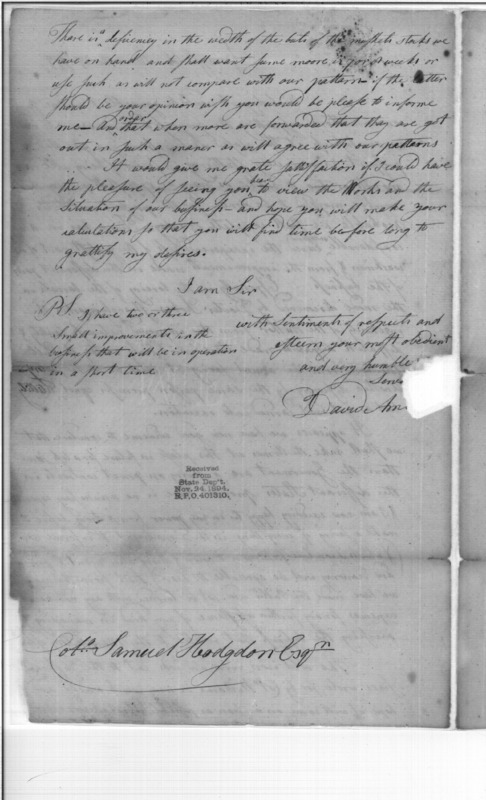 There is a deficiency in the wedth of the buts of the muskets stocks we
have on hand and shall want sume moore in 2 or 3 weeks or
use such as will not compare with our pattern if the latter
should be your opinion wish you would be please to informe
me — and order that when more are forwarded that they are got
out in such a maner as will agree with our patterns
It would give me grate sattisfaction if I could have
the pleasure of seeing you to view the Works and the
Situation of our business — and hope you will make your
calculations so that you will find time before long to
grattify my desires.
I am Sir
with Sentiments of respects and
esteem your most obedient
and very humble
Serv
David Am
PS. I have two or three
Small improvements in the
business that will be in operation
in a short time
Received
from
State Dep't.
Nov. 24, 1894,
R.P.O. 401310.
Coln. Samuel Hodgdon Esqr